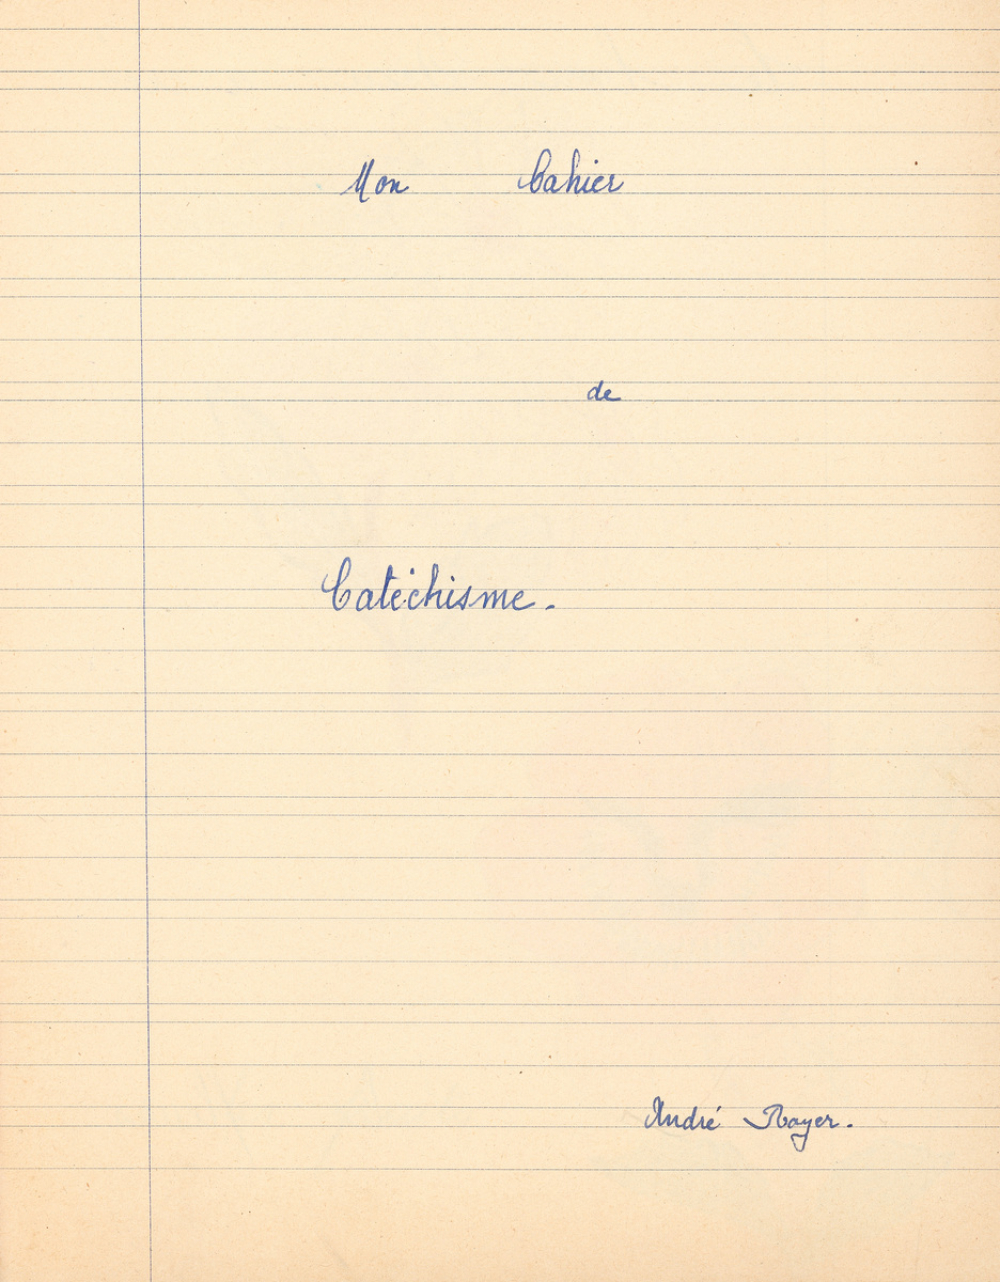 Mon Cahier
de
Catéchisme.
André Royer.